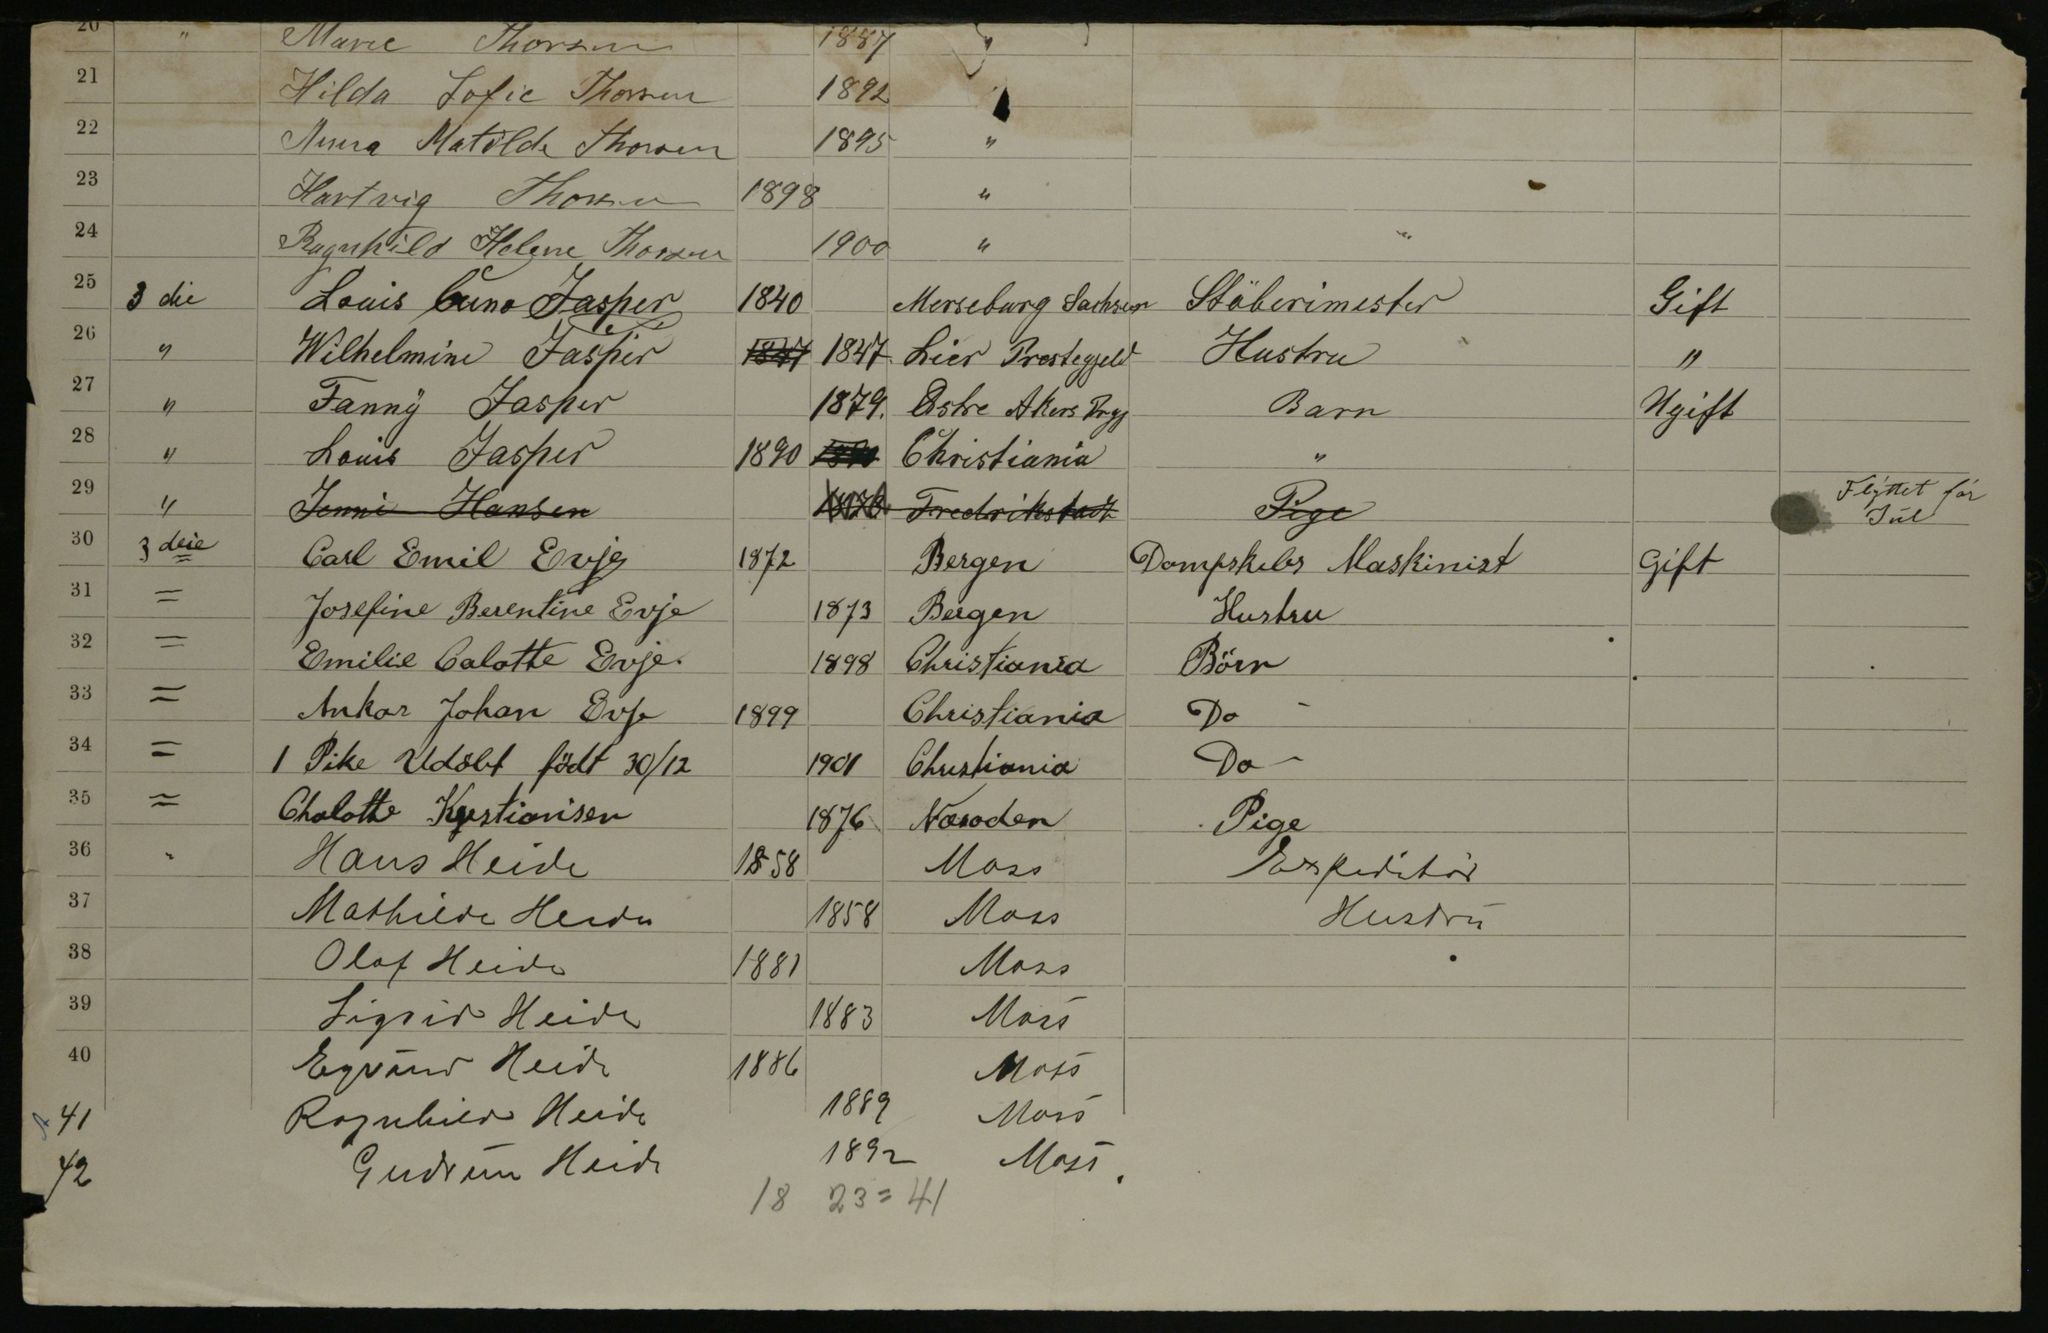 20 " Marie Thorsen 1887 "
21 Hilda Sofie Thorsen 1892 "
22 Anna Matilde Thorsen 1895 "
23 Hartvig Thorsen 1898 "
24 Ragnhild Helene Thorsen 1900 " "
25 3 die Louis Cuno Jasper 1840 Merseburg Sachsen Stöberimester Gift
26 " Wilhelmine Jasper 1847 1847 Lier Prestegjeld Hustru "
27 " Fanny Jasper 1879. Østre Akers Prgj Barn Ugift
28 " Louis Jasper 1890 1890 Christiania "
29 " Jenni Hansen 1878 Fredrikstadt Pige Flyttet för Jul
30 3 deie Carl Emil Evje 1872 Bergen Dampskibs Maskinist Gift
31 = Josefine Berentine Evje 1873 Bergen Hustru
32 = Emilie Calotte Evje. 1898 Christiania Börn
33 = Ankar Johan Evje 1899 Christiania Do -
34 = 1 Pike Udöbt födt 30/12 1901 Christiania Do -
35 = Chalotte Krestiansen 1876 Næsoden Pige
36 " Hans Heide 1858 Moss Expeditör
37 Mathilde Heide 1858 Moss Hustru
38 Olaf Heide 1881 Moss
39 Sigrid Heide 1883 Moss
40 Eyvind Heide 1886 Moss
41 Ragnhild Heide 1889 Moss
42 Gudrun Heide 1892 Moss.
18 23 = 41